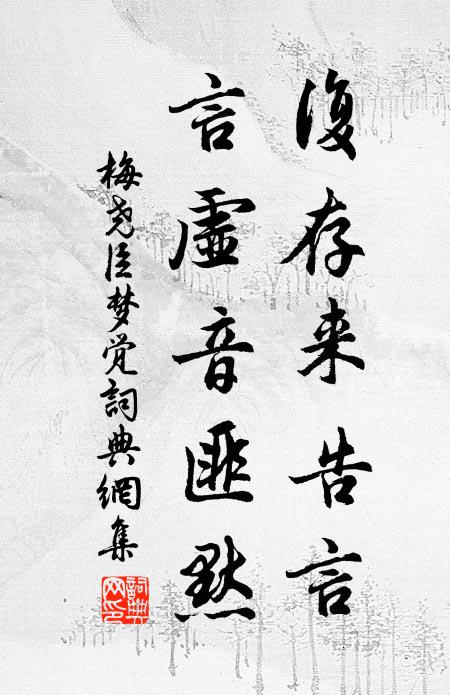 復存来告言
言虛音匪默
梅尧臣梦觉詞典網集
詞典
网印